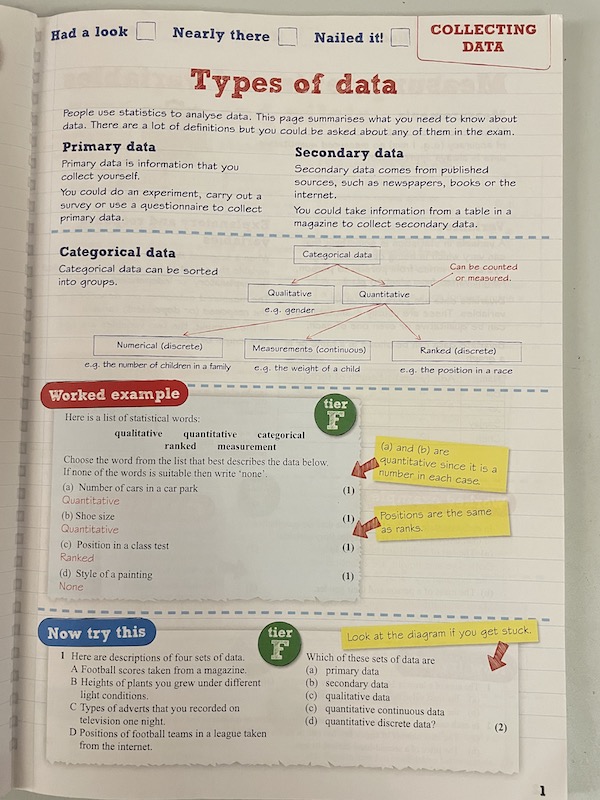 Had a look
Nearly there
Nailed it!
COLLECTING
DATA
Types of data
People use statistics to analyse data. This page summarises what you need to know about
data. There are a lot of definitions but you could be asked about any of them in the exam.
Primary data
Primary data is information that you
collect yourself.
You could do an experiment, carry out a
survey or use a questionnaire to collect
primary data.
Secondary data
Secondary data comes from published
sources, such as newspapers, books or the
internet.
You could take information from a table in a
magazine to collect secondary data.
Categorical data
Categorical data can be sorted
into groups.
Categorical data
Can be counted
or measured.
Qualitative
Quantitative
e.g. gender
Numerical (discrete)
Measurements (continuous)
Ranked (discrete)
e.g. the number of children in a family
e.g. the weight of a child
e.g. the position in a race
Worked example
tier
F
Here is a list of statistical words:
qualitative quantitative categorical
ranked measurement
Choose the word from the list that best describes the data below.
If none of the words is suitable then write 'none'.
(a) Number of cars in a car park (1)
Quantitative
(b) Shoe size (1)
Quantitative
(c) Position in a class test (1)
Ranked
(d) Style of a painting (1)
None
(a) and (b) are
quantitative since it is a
number in each case.
Positions are the same
as ranks.
Now try this
tier
F
Look at the diagram if you get stuck.
1 Here are descriptions of four sets of data.
A Football scores taken from a magazine.
B Heights of plants you grew under different
light conditions.
C Types of adverts that you recorded on
television one night.
D Positions of football teams in a league taken
from the internet.
Which of these sets of data are
(a) primary data
(b) secondary data
(c) qualitative data
(c) quantitative continuous data
(d) quantitative discrete data? (2)
1